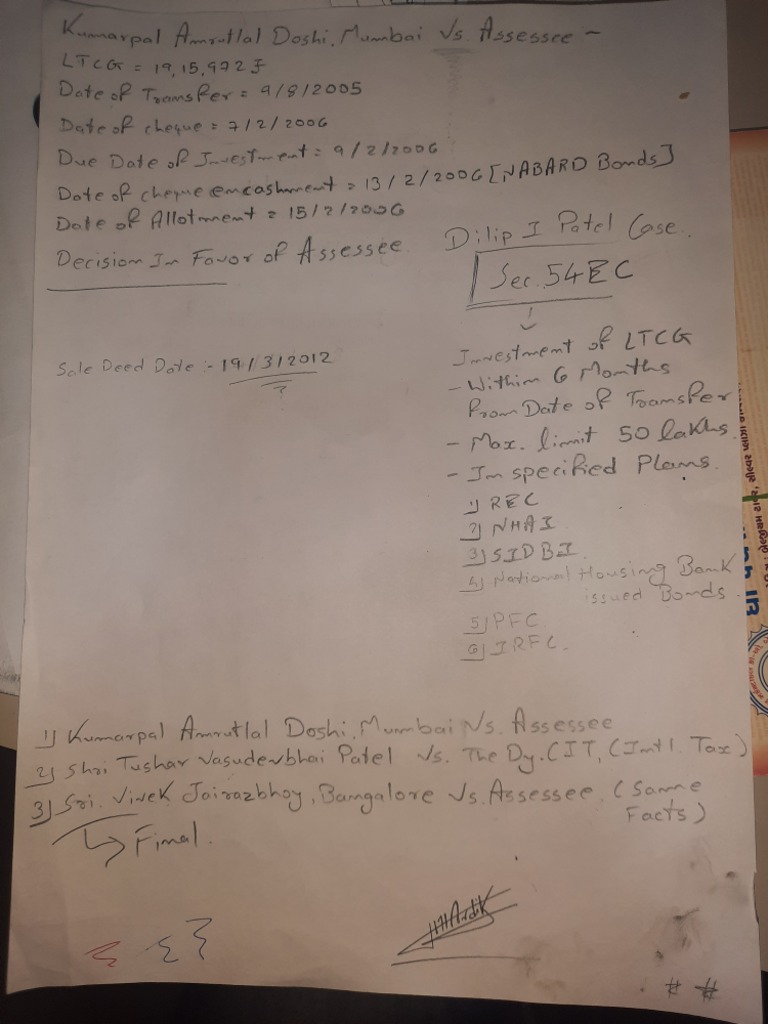 Kumarpal Amrutlal Doshi, Mumbai Vs. Assessee -
LTCG = 19,15,972 ₣
Date of Transfer = 9/8/2005
Date of cheque = 7/2/2006
Due Date of Investment = 9/2/2006
Date of cheque emcashment = 13/2/2006 [NABARD Bonds]
Date of Allotment = 15/2/2006
Decision In Favor of Assessee
Dilip I Patel Case.
Sec. 54EC
Investment of LTCG
- Within 6 Months
from Date of Transfer
- Max. limit 50 lakhs.
- In specified Plans.
1) REC
2) NHAI
3) SIDBI
4) National Housing Bank
issued Bonds.
5) PFC.
6) IRFC.
Sale Deed Date :- 19/3/2012
?
1) Kumarpal Amrutlal Doshi, Mumbai Vs. Assessee
2) Shri Tushar Vasudevbhai Patel vs. The Dy. CIT, (Intl. Tax)
3) Sri. Vivek Jairazbhoy, Bangalore Vs. Assessee. (Same
Facts)
Final.
HHArdik
# #